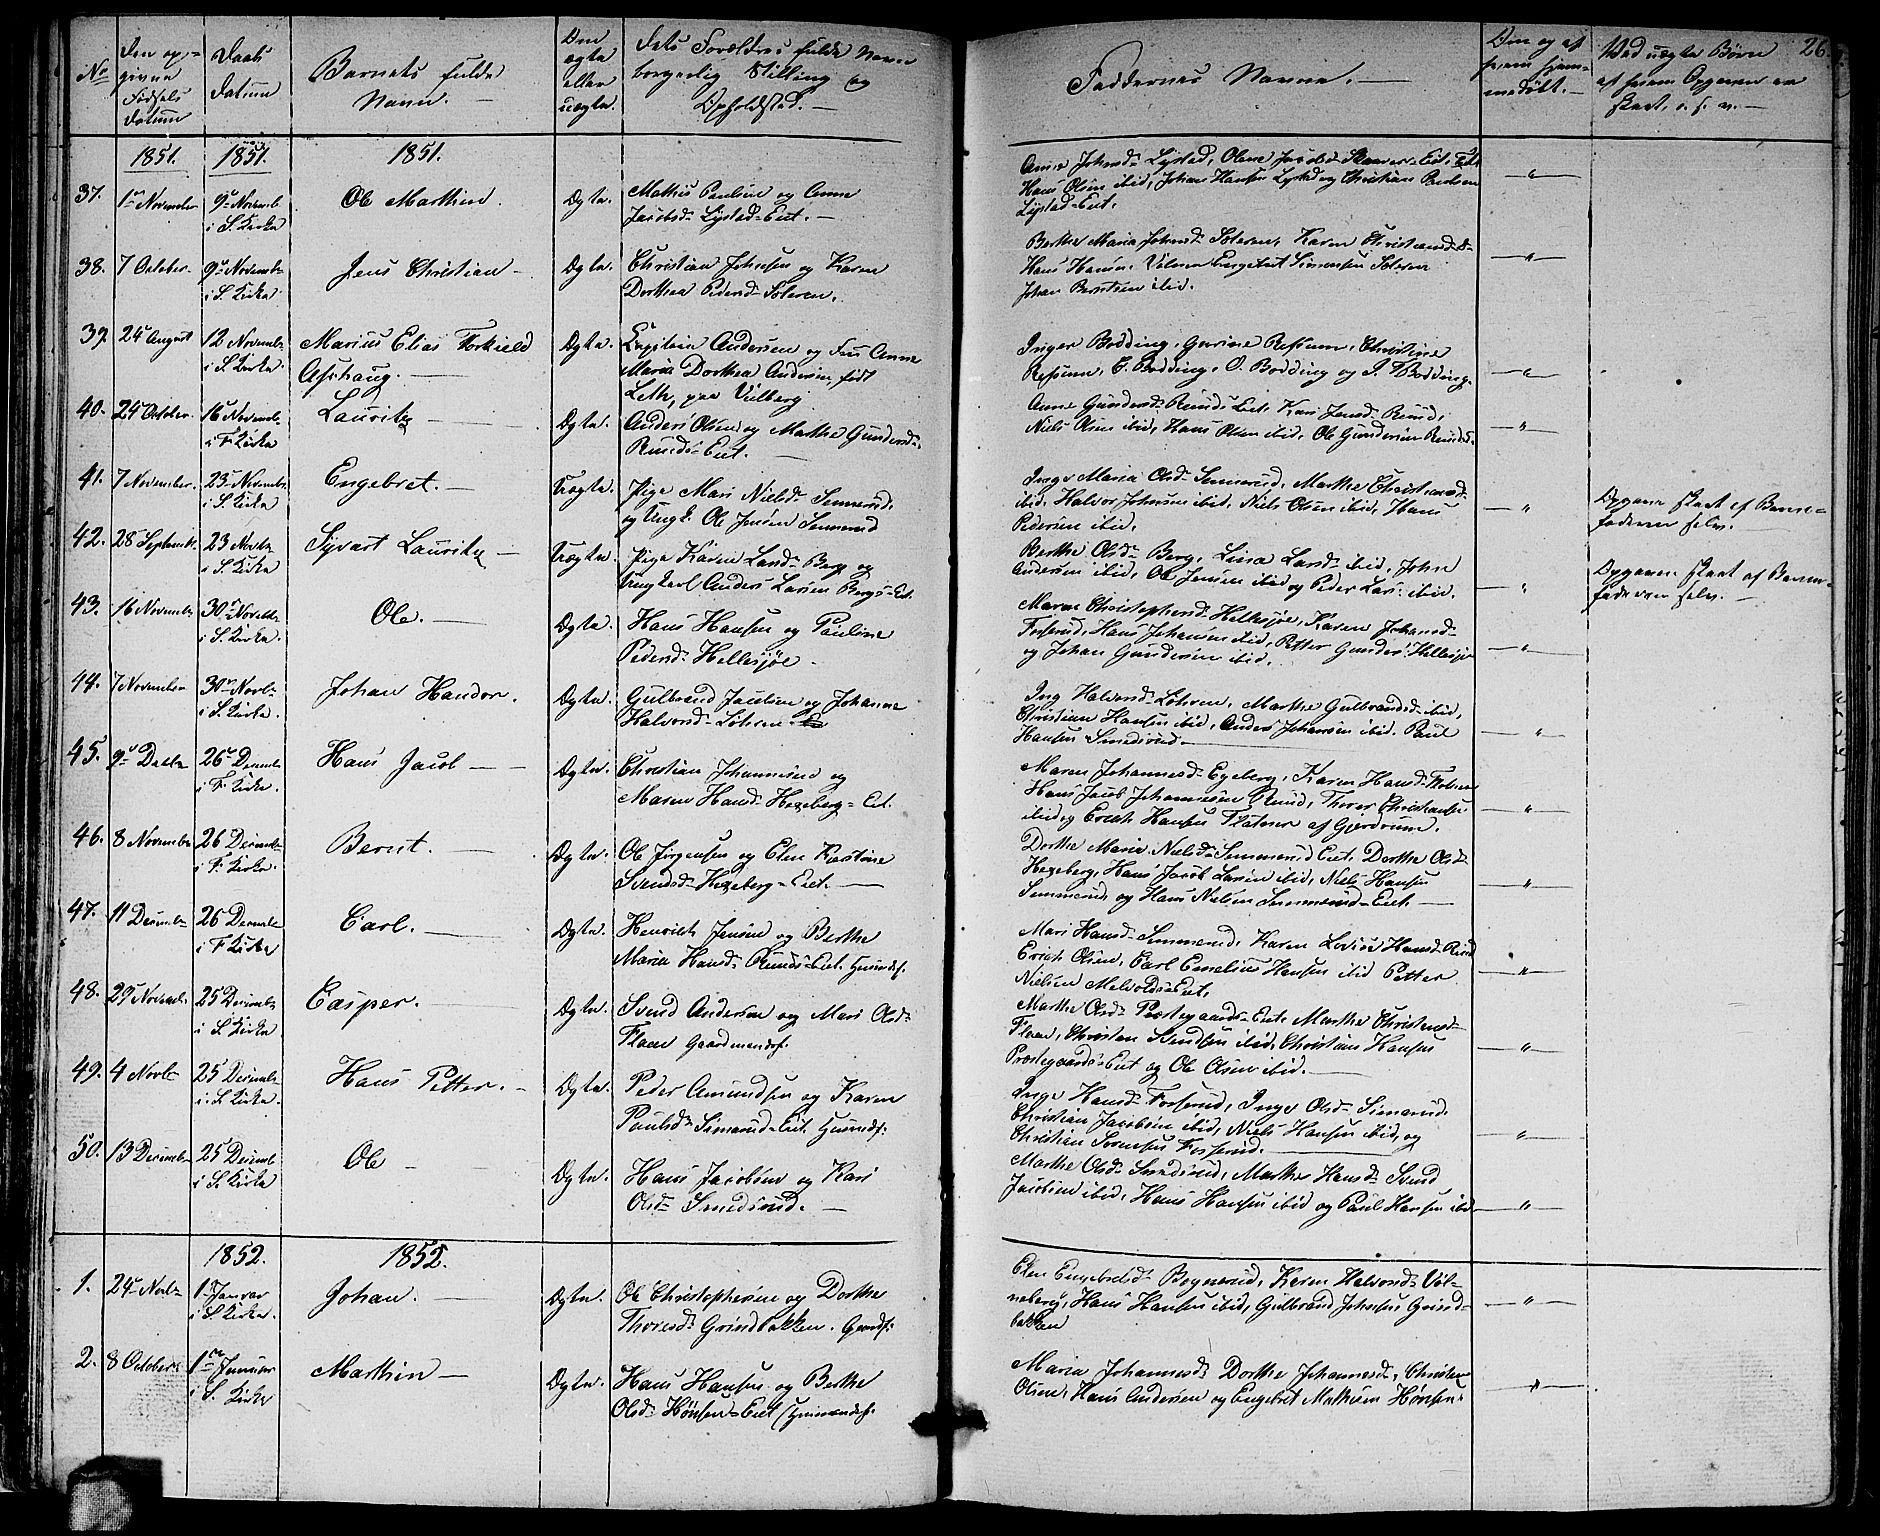 No
Den op-
givne
Fødsels
Datum
Daabs
Datum
Barnets fulde
Navn. —
Om
ægte
eller
uægte
Dets Forældres fulde Navn
borgerlig Stilling og
Opholdsted. —
Faddernes Navne. —
Om og af
hvem hjem-
medøbt. —
Ved uægte Børn
af hvem Opgaven er
skeet, o. s. v. —
26
1851. 1851. 1851.
37. 1ste November 9de Novemb
i S. Kirke
Ole Marthin.
Ægte.
Mathis Paulsen og Anne
Jacobsd. Lystad-Eiet. —
Anne Johnsd. Lystad, Olene Jacobsd.
Hans Olsen ibid, Johan Hansen Lystad og Christian Paulsen
Lystad-Eiet.
38. 7 October. 9de Novembr
i S. Kirke
Jens Christian —
Ægte.
Christian Johnsen og Karen
Dorthea Pedersd. Toleren.
Berthe Maria Johnsd. Toleren, Karen Christiansd.
Hans Hansen Simensen Toleren
Johan Berntsen ibid.
39. 24de August 12 Novembr
i S. Kirke.
Marius Elias Torkield
Aschaug. —
Ægte.
Capitain Andersen og Frue Anne
Maria Dorthea Andersen, født
Leth, paa Vilberg
Inger Bodding, Gurine Refsum, Christine
Refsum, C. Bodding, O. Bodding og P. Bodding.
40. 24de October 16de Novembr
i F. Kirke
Lauritz —
Ægte.
Anders Olsen og Marthe Gundersd.
Ruuds-Eiet. —
Anne Gundersd. Ruuds Eiet, Kari Jensd. Ruud,
Niels Olsen ibid, Hans Olsen ibid, Ole Gundersen Ruuds.
41. 7 November. 23de Novembr
i S. Kirke
Engebret. —
Uægte.
Pige Mari Nielsd. Semmerud
og Ungk. Ole Jensen Semmerud
Inge Maria Olsd. Semmerud, Marthe Christiansd.
ibid, Halvor Johnsen ibid, Niels Olsen ibid, Hans
Pedersen ibid.
Opgaven skeet af Barne-
faderen selv.
42. 28 Septembr. 23 Novbr
i S. Kirke
Syvert Lauritz —
Uægte.
Pige Karen Larsd. Berg og
Ungkarl Anders Larsen Bergs-Eiet.
Berthe Olsd. Berg, Lina Larsd. ibid, John
Andersen ibid, Ole Jensen ibid og Peder Lars. ibid.
Opgaven skeet af Barne-
faderen selv. —
43. 16 Novembr 30te Novembr
i S. Kirke.
Ole. —
Ægte.
Hans Hansen og Pauline
Pedersd. Hellesjøe.
Maren Christophersd. Hellesjøe, Karen Johansd.
Fosserud, Hans Johansen ibid, Petter Gunders. Hellesjøe
og Johan Gundersen ibid.
44. 7 November 30te Novbr
i S. Kirke.
Johan Haudor.
Ægte.
Gulbrand Jacobsen og Johanne
Halvorsd. Løhren.
Ing Halvorsd. Løhren, Marthe Gulbrandsd. ibid,
Christian Hansen ibid, Anders Johansen ibid, Paul
Hansen Smedsrud. —
45. 9de Decbr 26de Decembr
i F. Kirke.
Hans Jacob —
Ægte.
Christian Johannesen og
Maren Hansd. Hexeberg-Eiet.
Maren Johannesd. Egeberg, Karen Hansd.
Hans Jacob Johannesen Ruud, Thorer Christiansen
ibid og Erich Hansen Flatner af Gjerdrum.
46. 8 Novembr 26 Decembr
i F. Kirke.
Bernt. —
Ægte.
Ole Jørgensen og Elen Kirstine
Svendsd. Hexeberg-Eiet. —
Dorthe Maria Nielsd. Semmerud Eiet, Dorthe Olsd.
Hexeberg, Hans Jacob Larsen ibid, Niels Hansen
Semmerud, og Hans Nielsen Semmerud-Eiet. —
47. 11 Decembr 26 Decembr
i F. Kirke
Carl. —
Ægte.
Henrich Jensen og Berthe
Maria Hansd. Ruuds-Eiet. Huusmdf.
Mari Hansd. Semmerud, Karen Lovise Hansd. Ruud
Erich Olsen, Carl Emelius Hansen ibid Petter
Nielsen Melvolds-Eiet.
48. 29 Novembr. 25 Decembr
i S. Kirke
Casper.
Ægte.
Svend Andersen og Mari Olsd.
Flaen Gaardmandsf.
Marthe Olsd. Præstegaards-Eiet, Marthe Christensd.
Flaen, Christen Svendsen ibid, Christian Hansen
Præstegaards-Eiet og Ole Olsen ibid.
49. 4 Novbr 25 Decembr
i S. Kirke.
Hans Petter. —
Ægte.
Peder Amundsen og Karen
Paulsd. Simarud-Eiet. Huusmdf.
Inge Hansd. Fosserud, Inge Olsd. Simarud,
Christian Jacobsen ibid, Niels Hansen ibid, og
Christian Svensen Fosserud. —
50. 13 Decembr 25 Decemb
i S. Kirke
Ole —
Ægte.
Hans Jacobsen og Kari
Olsd. Smedsrud. —
Marthe Olsd. Smedsrud, Marthe Hansd. Svend
Jacobsen ibid, Hans Hansen ibid og Paul Hansen ibid.
1852. 1852.
1. 24de Novbr 1ste Januar
i S. Kirke.
Johan. —
Ægte.
Ole Christophersen og Dorthe
Thoresd. Grindbakken.
Elen Engebretsd. Bognerud, Karen Halvorsd. Vol-
neberg, Hans Hansen ibid, Gulbrand Johnsen Grind-
bakken
2. 8 October 1ste Januar
i S. Kirke
Marthin —
Ægte.
Hans Hansen og Berthe
Olsd. Hønsen-Eiet (Huusmandsf.
Maria Johannesd. Dorthe Johannesd., Christen
Olsen, Hans Andersen og Engebret Mathisen Hønsen.